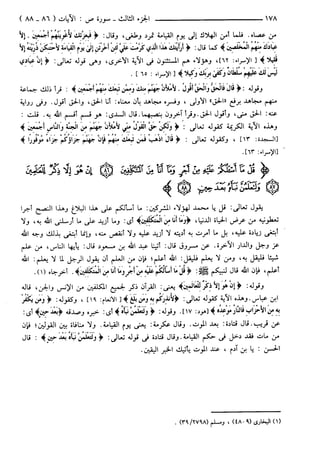 ١٧٨ الجزء الثالث - سورة ص : الآيات ( ٨٦ - ٨٨ )
من عصاه، فلما أمن الهلاك إلى يوم القيامة تمرد وطغى، وقال: ﴿ فبعزتك لأغوينهم أجمعين . إلا
عبادك منهم المخلصين ﴾ كما قال: ﴿ أرأيتك هذا الذي كرمت علي لئن أخرتن إلى يوم القيامة لأحتنكن ذريته إلا
قليلا ﴾ [ الإسراء: ٦٢ ]، وهؤلاء هم المستثنون في الآية الأخرى، وهي قوله تعالى: ﴿ إن عبادي
ليس لك عليهم سلطان وكفى بربك وكيلا ﴾ [ الإسراء : ٦٥ ] .
وقوله : ﴿ قال فالحق والحق أقول . لأملأن جهنم منك وممن تبعك منهم أجمعين ﴾ : قرأ ذلك جماعة
منهم مجاهد برفع «الحق» الأولى ، وفسره مجاهد بأن معناه: أنا الحق، والحق أقول. وفي رواية
عنه: الحق مني، وأقول الحق. وقرأ آخرون بنصبهما. قال السدي: هو قسم أقسم الله به. قلت :
وهذه الآية الكريمة كقوله تعالى : ﴿ ولكن حق القول مني لأملأن جهنم من الجنة والناس أجمعين ﴾
[السجدة: ١٣] ، وكقوله تعالى : ﴿ قال اذهب فمن تبعك منهم فإن جهنم جزاؤكم جزاء موفورا ﴾
[الإسراء: ٦٣].
﴿ قل ما أسألكم عليه من أجر وما أنا من المتكلفين ٨٦ إن هو إلا ذكر للعالمين
٨٧ ولتعلمن نبأه بعد حين ٨٨ ﴾
يقول تعالى: قل يا محمد لهؤلاء المشركين: ما أسألكم على هذا البلاغ وهذا النصح أجرا
تعطونيه من عرض الحياة الدنيا، ﴿ وما أنا من المتكلفين ﴾ أي: وما أزيد على ما أرسلني الله به، ولا
أبتغي زيادة عليه، بل ما أمرت به أديته لا أزيد عليه ولا أنقص منه، وإنما أبتغي بذلك وجه الله
عز وجل والدار الآخرة. عن مسروق قال: أتينا عبد الله بن مسعود قال: يأيها الناس، من علم
شيئا فليقل به، ومن لا يعلم فليقل: الله أعلم؛ فإن من العلم أن يقول الرجل لما لا يعلم: الله
أعلم، فإن الله قال لنبيكم ﷺ: ﴿ قل ما أسألكم عليه من أجر وما أنا من المتكلفين ﴾. أخرجاه (١).
وقوله: ﴿ إن هو إلا ذكر للعالمين ﴾ يعني: القرآن ذكر لجميع المكلفين من الإنس والجن، قاله
ابن عباس. وهذه الآية كقوله تعالى: ﴿ لأنذركم به ومن بلغ ﴾ [ الأنعام: ١٩] ، وكقوله: ﴿ ومن يكفر
به من الأحزاب فالنار موعده ﴾ [هود: ١٧]. وقوله: ﴿ ولتعلمن نبأه ﴾ أي: خبره وصدقه ﴿ بعد حين ﴾ أي:
عن قريب. قال قتادة: بعد الموت. وقال عكرمة: يعني يوم القيامة. ولا منافاة بين القولين؛ فإن
من مات فقد دخل في حكم القيامة. وقال قتادة في قوله تعالى: ﴿ ولتعلمن نبأه بعد حين ﴾ : قال
الحسن : يا بن آدم ، عند الموت يأتيك الخبر اليقين.
(١) البخاري (٤٨٠٩) ، ومسلم (٢٧٩٨ / ٣٩) .